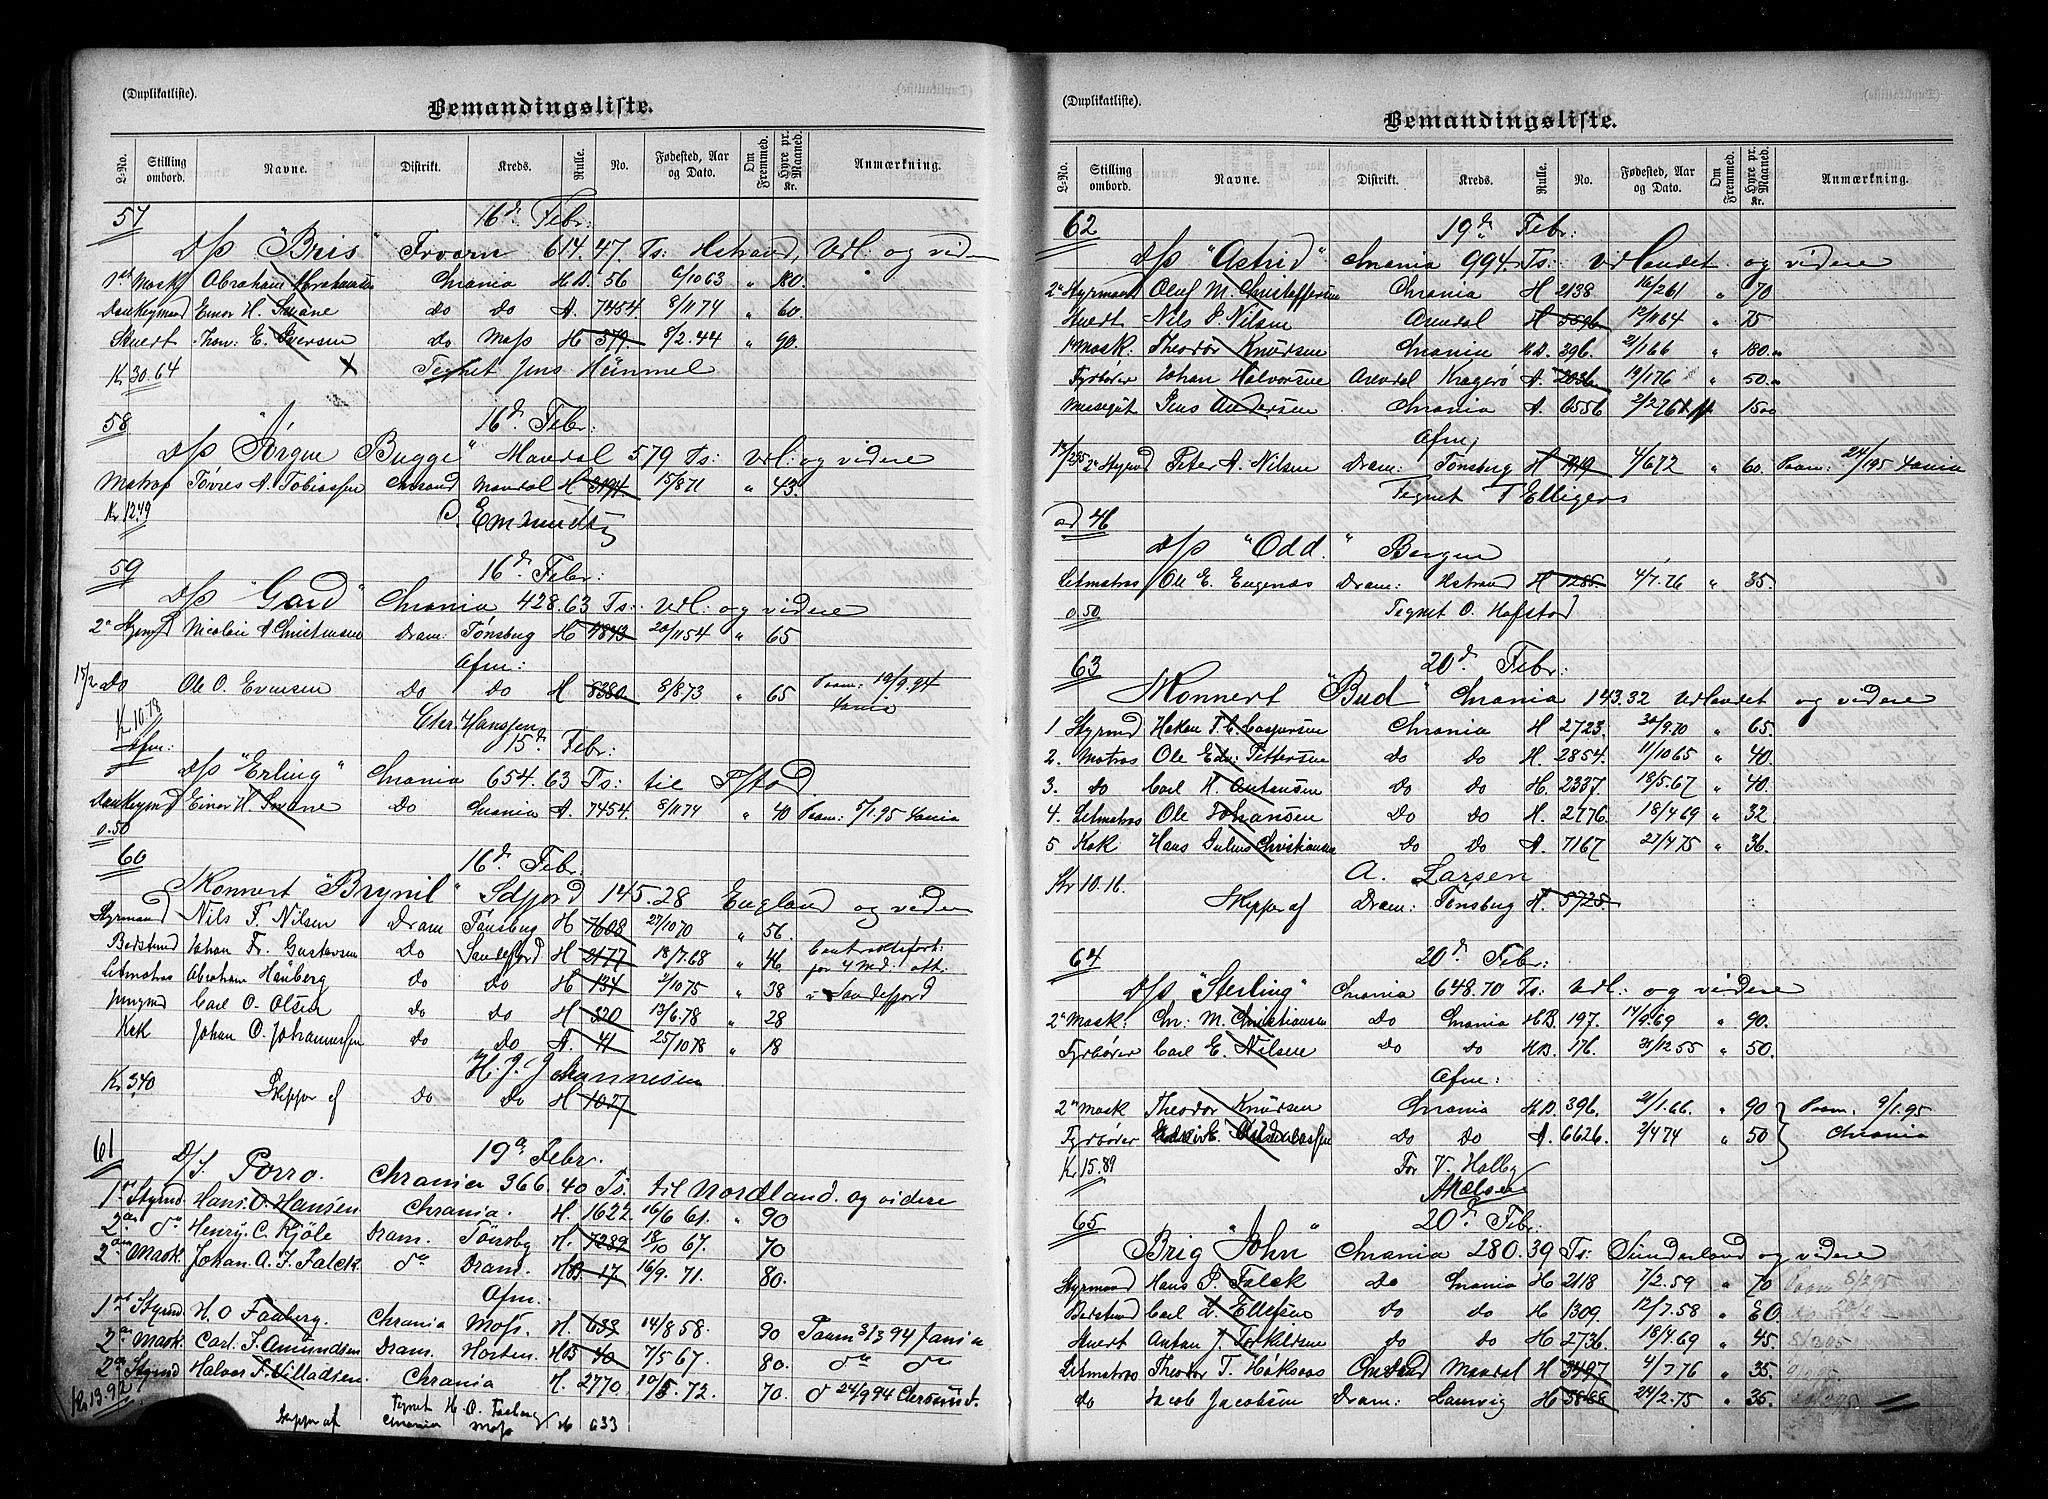 (Duplikatliste).
Bemandingsliste.
L-No. Stilling ombord. Navne. Distrikt. Kreds. Rulle. No. Fødested, Aar og Dato. Om Fremmed. Hyre pr. Maaned. Kr. Anmærkning.
57 16d. Febr:
D/s "Bris" 614.47. Ts: Hstrand, Udl: og vid
Mask Abrahams Abrahamsen Chrania H.D. 56 6/10 63 " 180.
Einar H. Smane do do A. 7454 8/11 74 " 60.
Stuert E. Iversen do Moss H 379 8/2.44 " 90.
Kr 30.64 Tegnet Jens Hümmel
58 16d. Febr:
D/s "Jørgen Bugge" Mandal 579 Ts: Udl: og videre
Matros Tøvres A. Tobiassen Chrsand Mandal H 3194 15/8 71 " 43.
Kr 12.49
59 16d. Febr:
D/s "Gard" Chrania 428.63 Ts: Udl: og videre
2n Nicolai A Christensen Dram: Tønsberg H 4843 20/11 54 " 65
Afm:
17/2 Do Ole O. Evensen Do Do H 8380 8/8 73 " 65 Paam: 19/9.94
Kr 10.78 Chr. Hanssen
Afm: 15d. Febr:
D/s "Erling" Chrania 654.63 Ts: til
Einar H. Smane Do Chrania A. 7454 8/11 74 " 40 Paam: 5/1.95
0.50
60 16d. Febr
Skonnert "Brynil" Sdfjord 145.28 England og videre
Styrmand Nils F. Nilsen Dram Tønsberg H 7608 27/10 70 " 56.
Johan Fr. Gustavsen Do Sandefjord H 2177 18/7.68 " 46
Letmatros Abraham Hauberg do do H 134 2/10 75 " 38 i Sandefjord
Jungmd Carl O. Olsen do do H 320 13/6.78 " 28
Kok Johan O. Johannessen do Do A. 41 25/10 78 " 18
H. J. Johannesen
Kr 3.40 Skipper af Do Do H 1027
61 19d. Febr.
D/S. Porro. Chrania 366.40 Ts. til Nordland og videre
1ste Styrmd Hans. O. Hansen Chrania. H. 1622 16/6 61. " 90
2den do Henry. C. Kjöle Dram. Tönsbg H. 7289 18/10 67. 70
2den Mask Johan. A. F. Falck. do Dram. HB 17 16/9. 71. 80.
Afm.
1ste Styrmd. H. O Faaberg. Chrania Moss. H. 633 14/8 58. 90
2den Mask. Carl. F. Amundsen Dram. Horten. HB 40 7/5 67. 80. do do
2den Styrmd Halvor F. Villadsen. Chrania H. 2770 10/5. 72. 70. do 24/9 94
Kr. 13.92
Skipper af Tegnet H. O. Faaberg
Chrania Moss H 633
(Duplikatliste).
Bemandingsliste.
L-No. Stilling ombord. Navne. Distrikt. Kreds. Rulle. No. Fødested, Aar og Dato. Om Fremmed. Hyre pr. Maaned. Kr. Anmærkning.
62 19d. Febr:
D/s "Astrid" Chrania 994. Ts: Udlandet og videre
2n Styrmand Oluf M. Christoffersen Chrania H 2138 16/2 61 " 70
Stuert Nils P. Nilsen Arendal H 5596 12/11 64 " 75
1n Mask. Theodor Knudsen Chrania H.D. 396. 21/1 66 " 180.
Fyrbøter Johan Halvorsen Arendal Kragerø A. 2036 19/1 76 " 50.
Messegut Jens Andersen Chrania A. 6556 2/2 76 15
Afm:
2n Styrmd Peter A. Nilsen Dram: Tønsberg H 7919 4/6 72 " 60. Paam: 24/1 95
Tegnet T Elligers
ad 46
D/s "Odd." Bergen
Letmatros Ole E. Engenæs Dram: Hstrand H 1285 4/7.76 " 35.
0.50 Tegnet O. Hofstad
63 20d. Febr:
Skonnert "Bud" Chrania 143.32 Udlandet og videre
1 Styrmd Hakon T. C. Caspersen Chrania H. 2723. 30/9.70 " 65.
2. Matros Ole Edv. Pettersen do do H. 2854. 11/10 65 " 40.
3. do Carl K. Antonsen do do H. 2337. 18/5.67 " 40.
4. Letmatros Ole Johansen Do do H. 2776. 18/4 69 " 32.
5 Kok Hans Julius Christiansen do do A. 7167 27/4 75 " 36.
Kr 10.16. A. Larsen
Skipper af Dram: Tønsberg H. 5725
64 20d. Febr:
D/s "Sterling" Chrania 648.70 Ts: Udl: og videre
2n Mask: Chr: M. Christiansen do Chrania H.B. 197. 14/9.69 " 90.
Fyrbøter Carl E. Nilsen Do do H.D. 176. 31/12 55 " 50.
Afm:
2n Mask Theodor Knudsen Chrania H.D. 396. 21/1.66. " 90 Paam. 9/1.95
Fyrbøter Do do A. 6626. 2/4 74 " 50 Chrania
Kr 15.89 For V. Holby
65 20d. Febr.
Brig "John" Chrania 280.39 Ts: Sunderland og videre
Styrmand Hans P. Falck Do Chrania H 2118 7/2.59 " 70 Paam 8/2 95
Carl L. Ellefsen do do H 1309. 12/7.58 " 60.
Stuert Anton J. Torkildsen do do H 2736. 18/4.69 " 45.
Letmatros Theodor T. Haksaas Chrsand Mandal H 3497 4/7.76 " 35.
do Jacob Jacobsen Dram: Laurvig H 24/2.75 " 35.